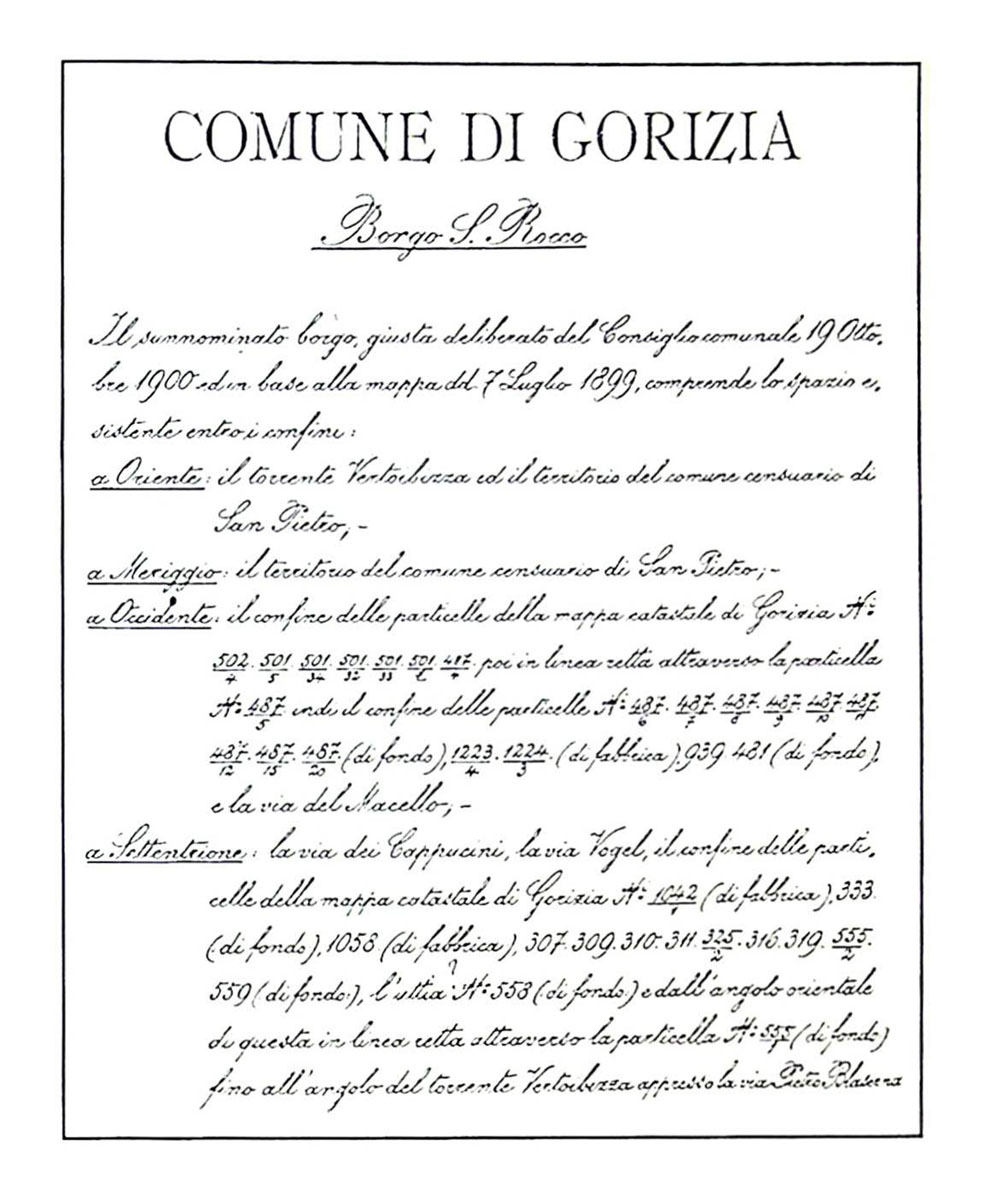 COMUNE DI GORIZIA
Borgo S. Rocco
Il sunnominato borgo, giusta deliberato del Consiglio comunale 19 Otto,
bre 1900 ed in base alla mappa dd. 7 Luglio 1899, comprende lo spazio e,
sistente entro i confini:
a Oriente: il torrente Vertoibizza ed il territorio del comune censuario di
San Pietro; -
a Meriggio: il territorio del comune censuario di San Pietro; -
a Occidente: il confine delle particelle della mappa catastale di Gorizia Nº
502/4. 501/5. 501/34. 501/32. 501/33. 501/1. 487/4. poi in linea retta attraverso la particella
Nº 487/5 indi il confine delle particelle Nº 487/6. 487/7. 487/8. 487/9. 487/10. 487/11.
487/12. 487/15. 487/20. (di fondo), 1223/4. 1224/3. (di fabbrica), 939. 481 (di fondo),
e la via del Macello; -
a Settentrione: la via dei Cappucini, la via Vogel, il confine delle parti,
celle della mappa catastale di Gorizia Nº 1042/1 (di fabbrica), 333.
(di fondo), 1058 (di fabbrica), 307. 309. 310. 311. 325/2. 316. 319. 555/2.
559 (di fondo), l'ultia Nº 558 (di fondo) e dall'angolo orientale
di questa in linea retta attraverso la particella Nº 555/1 (di fondo)
fino all'angolo del torrente Vertoibizza appresso la via Pietro Blaserna